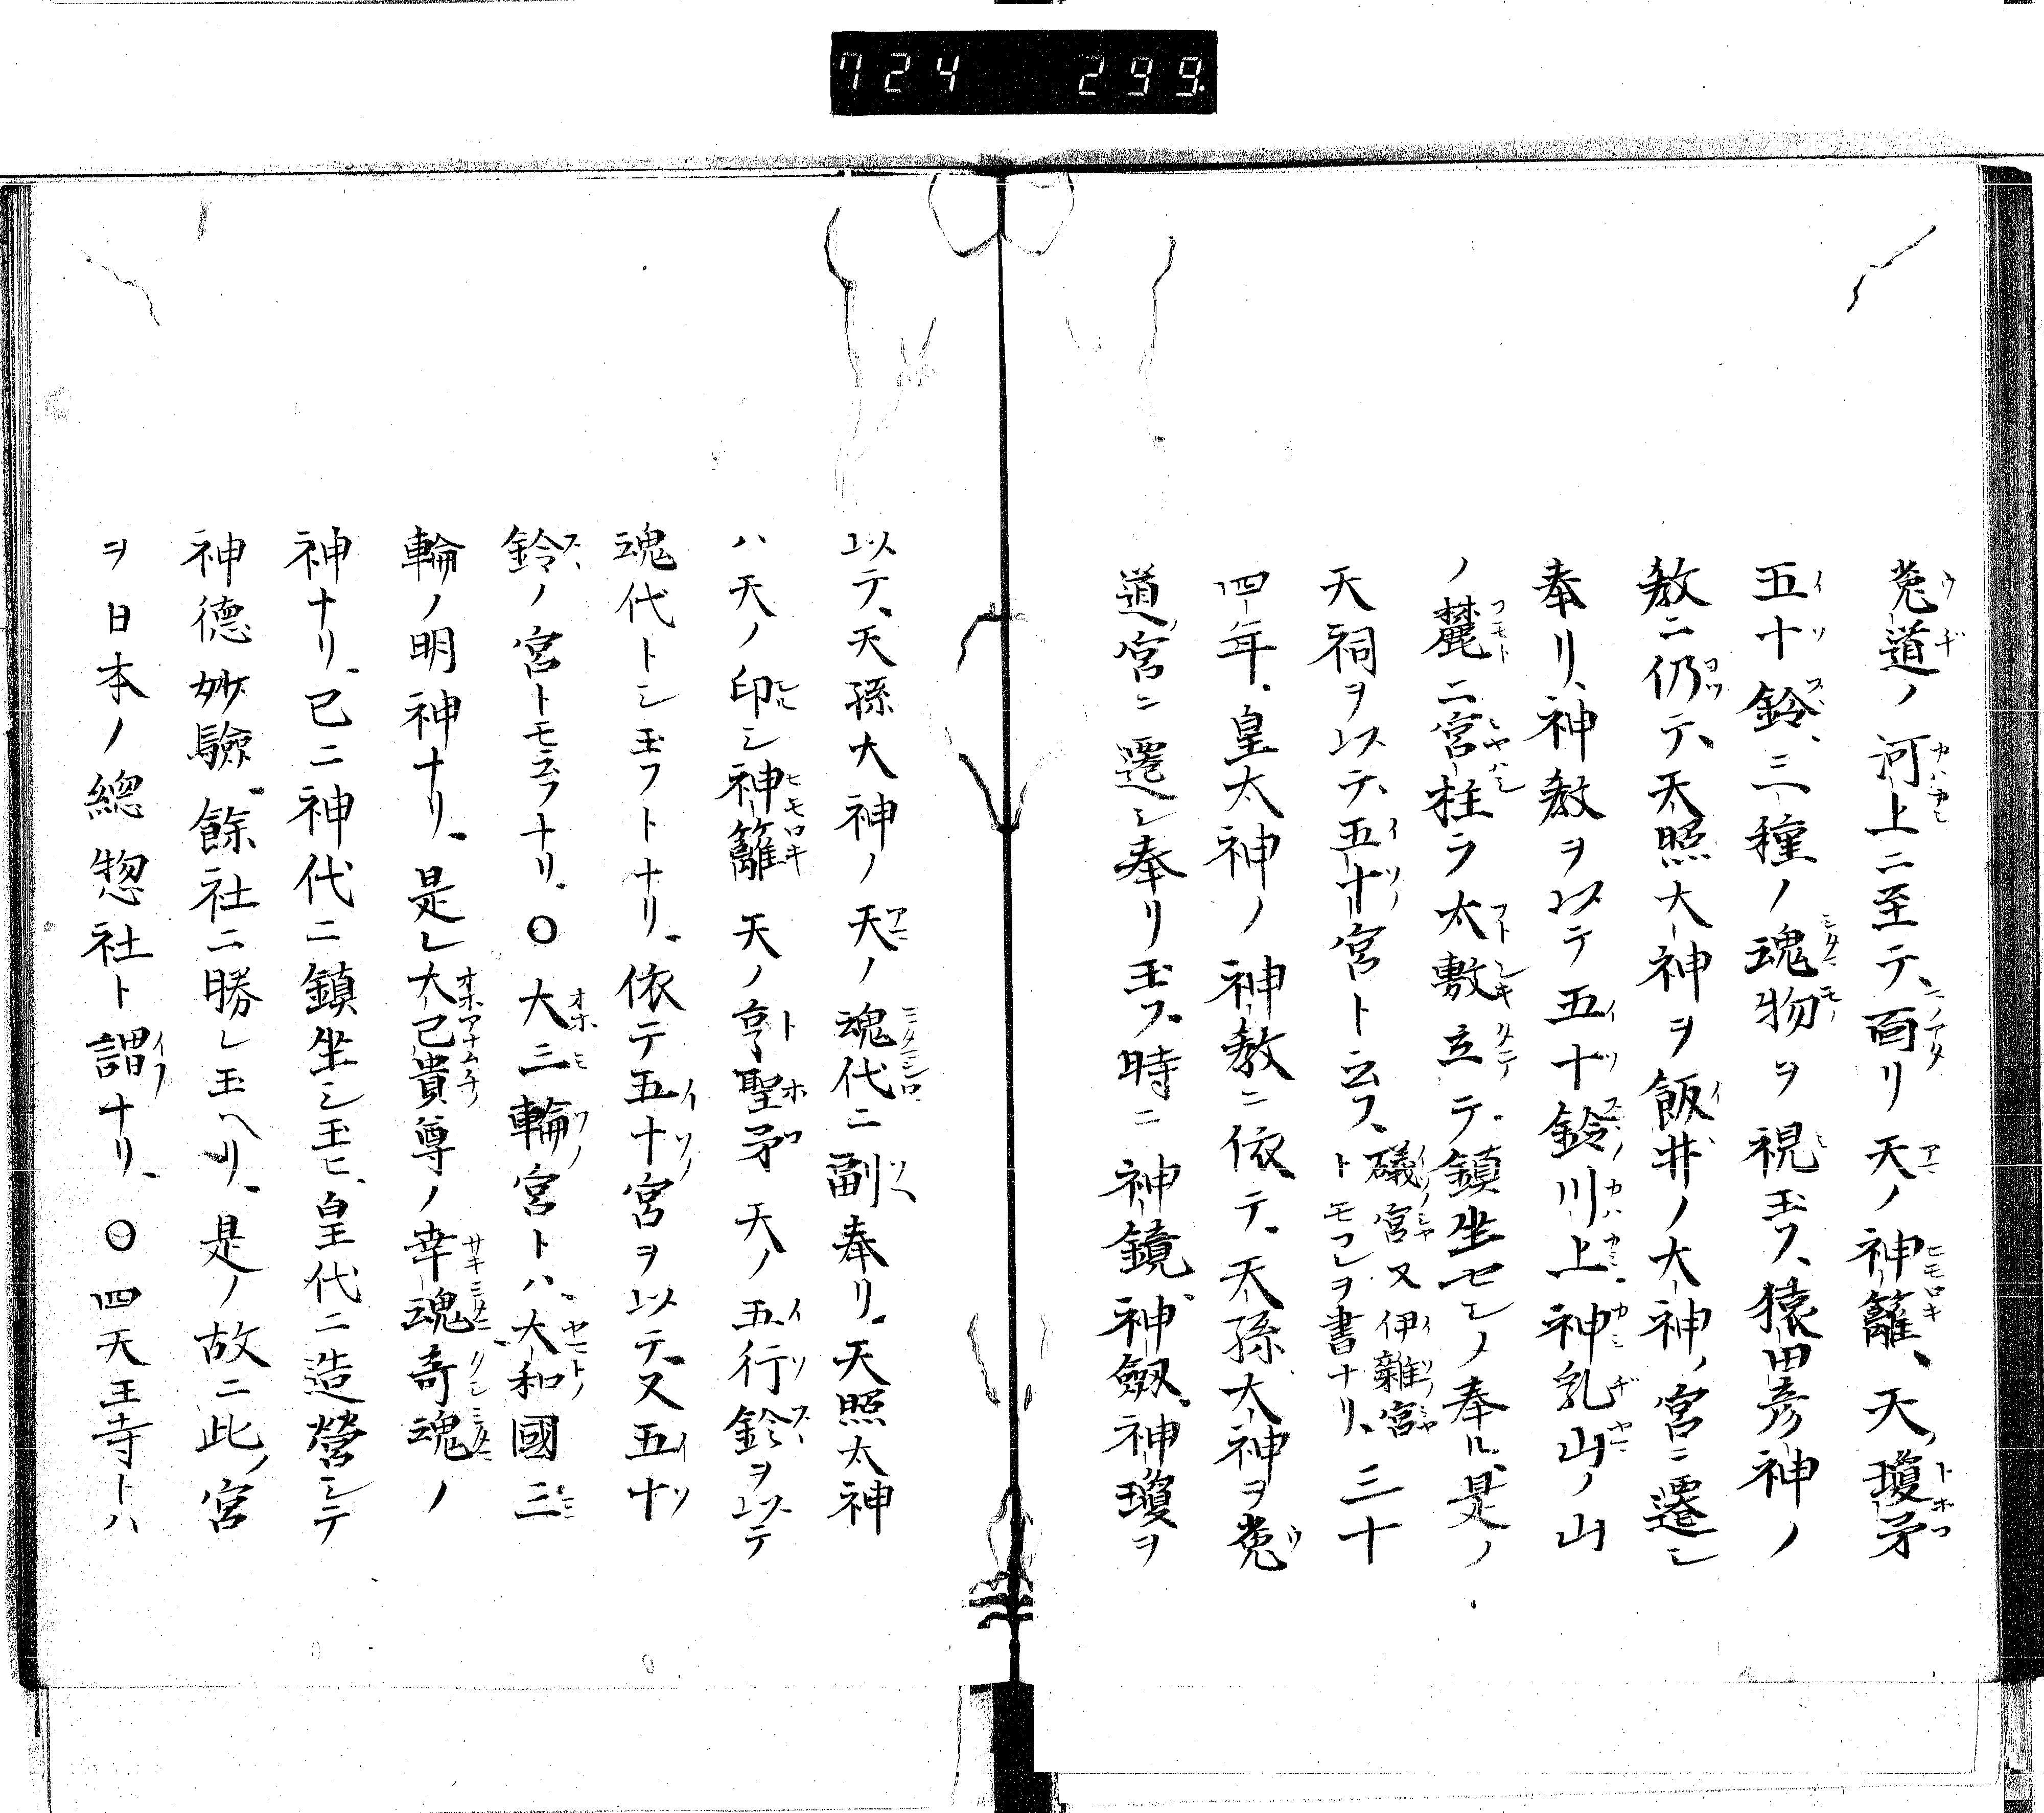 724 299
菟道ノ河上ニ至テ、面リ天ノ神籬、天ノ瓊矛
五十鈴、三種ノ魂物ヲ視玉フ、猿田彦神ノ
教ニ仍テ、天照大神ヲ飯井ノ大神ノ宮ニ遷シ
奉リ、神教ヲ以テ五十鈴川上神乳山ノ山
ノ麓ニ宮柱ラ太敷立テ、鎮坐セシノ奉ル、是ノ
天祠ヲ以テ、五十宮ト云フ、礒宮又伊雜宮トモコレヲ書ナリ、三十
四年、皇太神ノ神教ニ依テ、天孫大神ヲ菟
道宮ニ遷シ奉リ玉フ、時ニ神鏡、神劔、神瓊ヲ
以テ、天孫大神ノ天ノ魂代ニ副奉リ、天照太神
ハ天ノ印シ神籬天ノ亨聖矛天ノ五行鈴ヲ以テ
魂代トシ玉フトナリ、依テ五十宮ヲ以テ、又五十
鈴ノ宮トモ云フナリ、○大三輪宮トハ、大和國三
輪ノ明神ナリ、是レ大己貴尊ノ幸魂奇魂ノ
神ナリ、已ニ神代ニ鎮坐シ玉ヒ、皇代ニ造營シテ
神德妙驗、餘社ニ勝レ玉ヘリ、是ノ故ニ此ノ宮
ヲ日本ノ總惣社ト謂ナリ、○四天王寺トハ